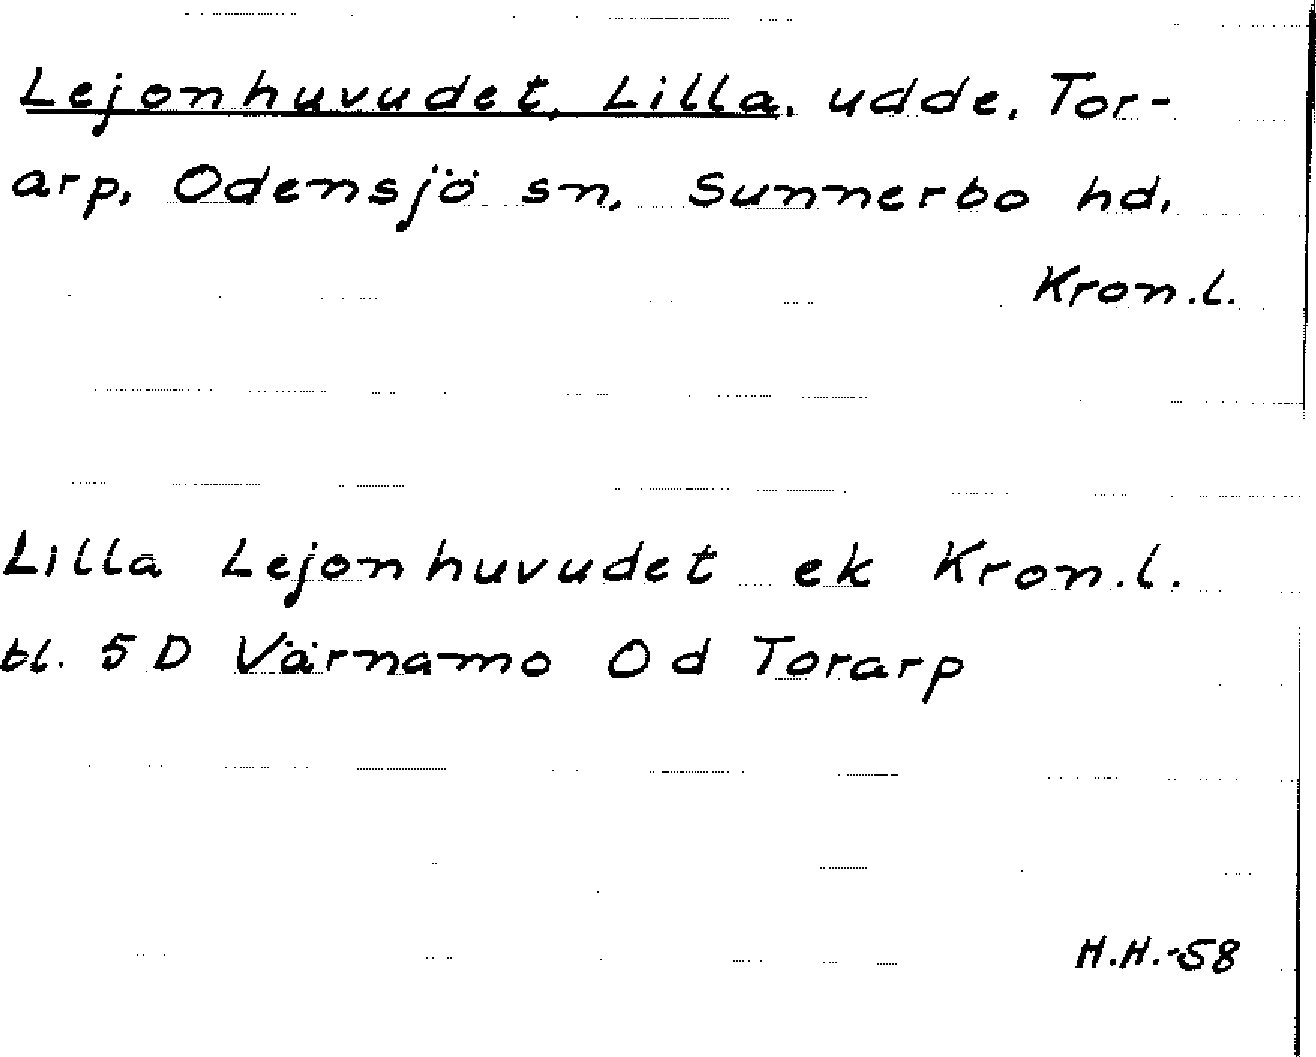 Lejonhuvudet, Lilla, udde, Tor-
arp, Odensjö sn, Sunnerbo hd,
Kron.l.
Lilla Lejonhuvudet ek Kron.l.
bl. 5 D Värnamo Od Torarp
H.H.-58